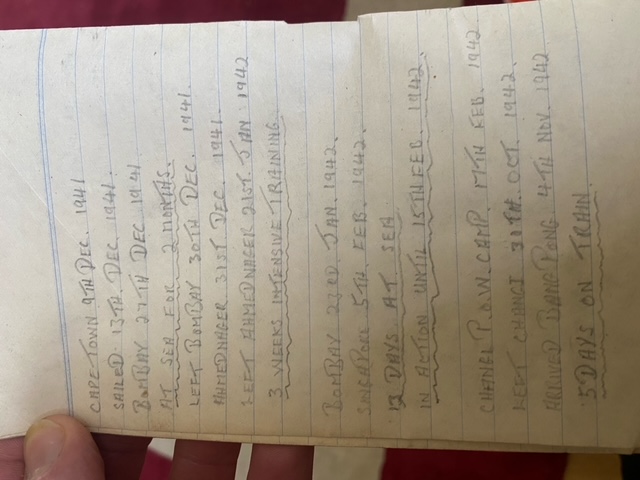 CAPE TOWN 9TH DEC. 1941
SAILED 13TH DEC. 1941.
BOMBAY 27TH DEC 1941
AT SEA FOR 2 MONTHS.
LEFT BOMBAY 30TH DEC. 1941.
AHMEDNAGER 31ST DEC. 1941.
LEFT AHMEDNAGER 21ST JAN 1942
3 WEEKS INTENSIVE TRAINING.
BOMBAY 23RD JAN. 1942.
SINGAPORE 5TH FEB. 1942.
13 DAYS AT SEA
IN ACTION UNTIL 15TH FEB. 1942.
P.O.W. CAMP. 17TH FEB. 1942
LEFT CHANGI OCT. 1942.
ARRIVED BANG PONG 4TH NOV. 1942
5 DAYS ON TRAIN